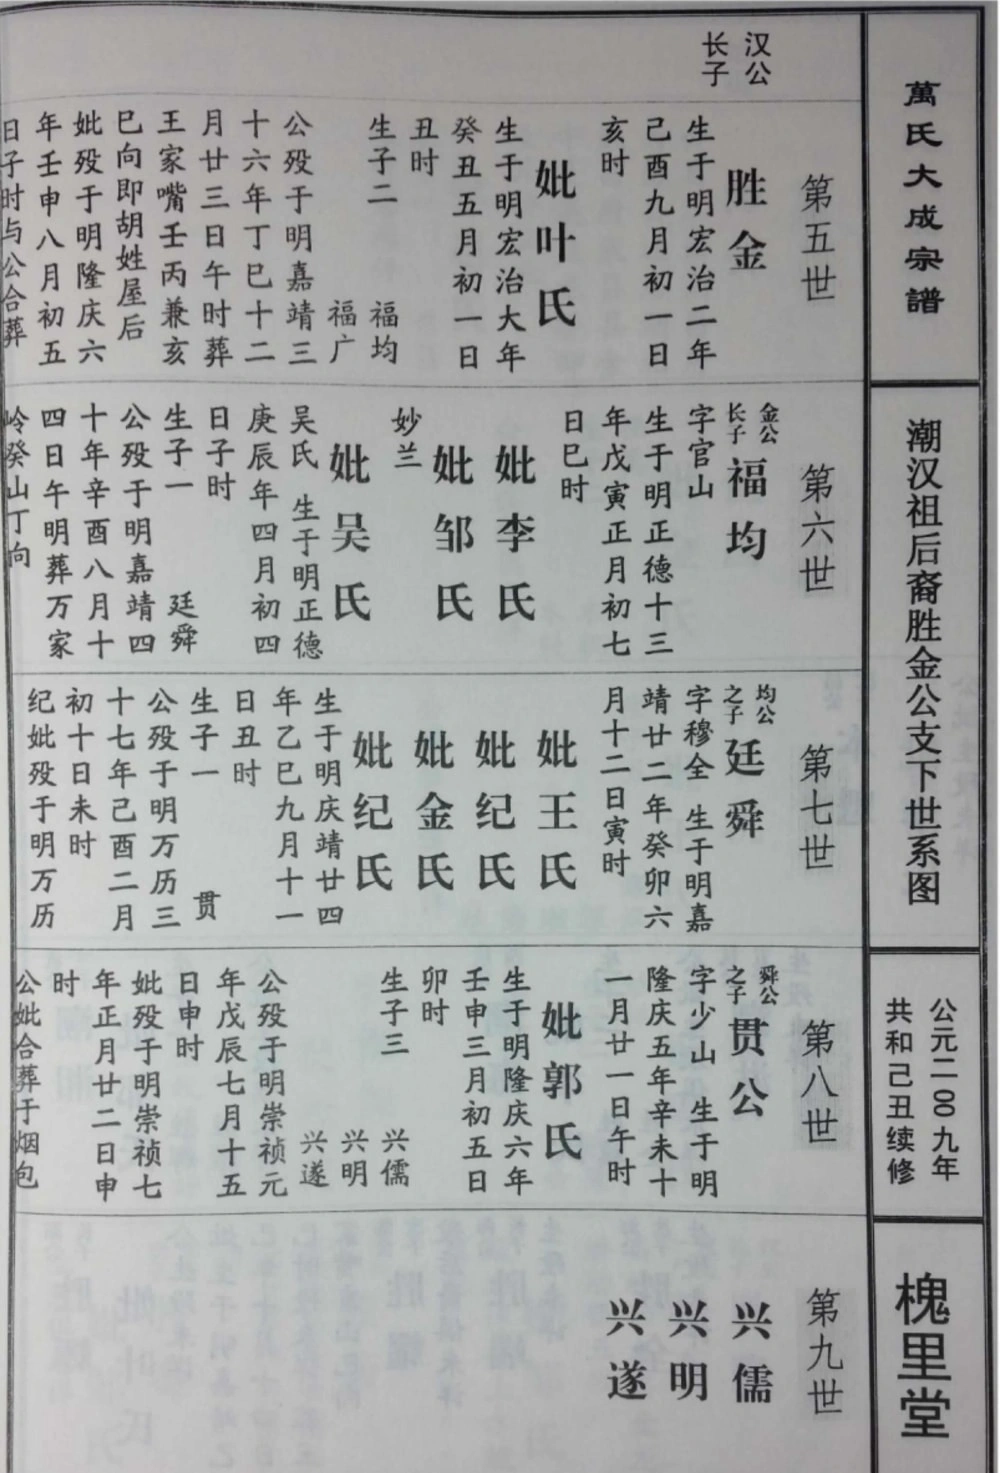 萬氏大成宗譜
潮汉祖后裔胜金公支下世系图
公元二00九年
共和己丑续修
槐里堂
汉公
长子
第五世
胜金
生于明宏治二年
己酉九月初一日
亥时
妣叶氏
生于明宏治大年
癸丑五月初一日
丑时
生子二 福均
福广
公殁于明嘉靖三
十六年丁巳十二
月廿三日午时葬
王家嘴壬丙兼亥
巳向即胡姓屋后
妣殁于明隆庆六
年壬申八月初五
日子时与公合葬
第六世
金公
长子
福均
字官山
生于明正德十三
年戊寅正月初七
日巳时
妣李氏
妣邹氏
妙兰
妣吴氏
吴氏 生于明正德
庚辰年四月初四
日子时
生子一 廷舜
公殁于明嘉靖四
十年辛酉八月十
四日午明葬万家
岭癸山丁向
第七世
均公
之子
廷舜
字穆全 生于明嘉
靖廿二年癸卯六
月十二日寅时
妣王氏
妣纪氏
妣金氏
妣纪氏
生于明庆靖廿四
年乙巳九月十一
日丑时
生子一 贯
公殁于明万历三
十七年己酉二月
初十日未时
纪妣殁于明万历
第八世
舜公
之子
贯公
字少山 生于明
隆庆五年辛未十
一月廿一日午时
妣郭氏
生于明隆庆六年
壬申三月初五日
卯时
生子三 兴儒
兴明
兴遂
公殁于明崇祯元
年戊辰七月十五
日申时
妣殁于明崇祯七
年正月廿二日申
时
公妣合葬于烟包
第九世
兴儒
兴明
兴遂